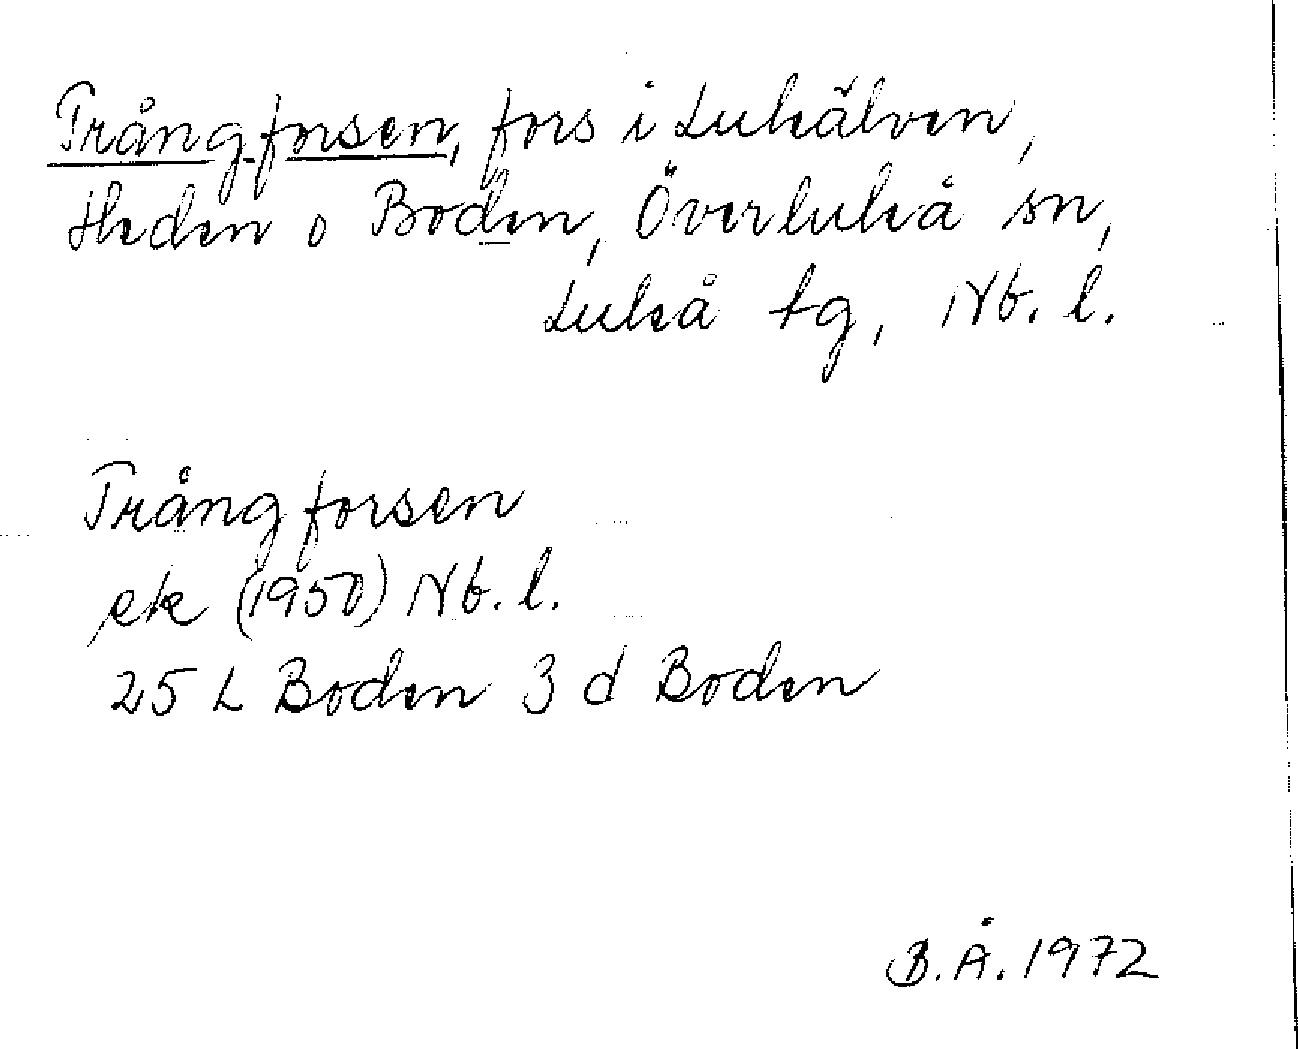 Trångforsen, fors i Luleälven,
Heden o Boden, Överluleå sn,
Luleå tg, Nb. l.
Trångforsen
ek (1950) Nb. l.
25 L Boden 3 d Boden
B.Å. 1972